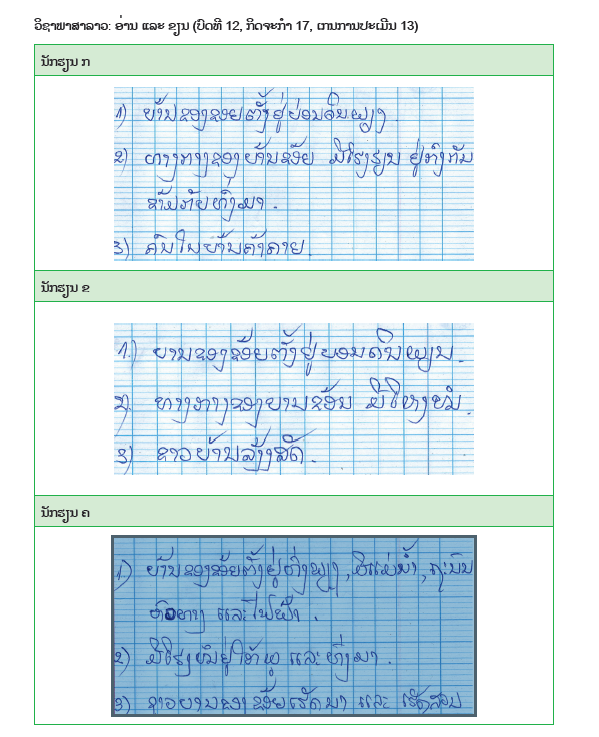 ວິຊາພາສາລາວ: ອ່ານ ແລະ ຂຽນ (ບົດທີ 12, ກິດຈະກໍາ 17, ເກນການປະເມີນ 13)
ນັກຮຽນ ກ
1) ບ້ານຂອງຂອຍຕັ້ງຢູ່ບ່ອນດິນພຽງ.
2) ທາງກາງຂອງບ້ານຂ້ອຍ ມີໂຮງຮຽນ ຢູ່ກົງກັນ
ຂ້າມກັບທົ່ງນາ.
3) ຄົນໃນບ້ານຄ້າຂາຍ.
ນັກຮຽນ ຂ
1.) ບານຂອງຂ້ອຍຕັ້ງຢູ່ບອນດິນພຽນ.
2) ທາງກາງຂອງບານຂອ້ນ
3) ຊາວບ້ານລ້ຽງສັດ.
ນັກຮຽນ ຄ
1) ບ້ານຂອງຂ້ອຍຕັ້ງຢູ່ ມີແມ່ນ້ຳ,
ຫົນທາງ ແລະ ໄຟຟ້າ.
2) ມີໂຮງໝໍຢູ່ໃກ້ພູ ແລະ ທົ່ງນາ.
3) ຊາວບານຂອງ ຂ້ອຍເຮັດນາ ແລະ ເຮັດສວນ